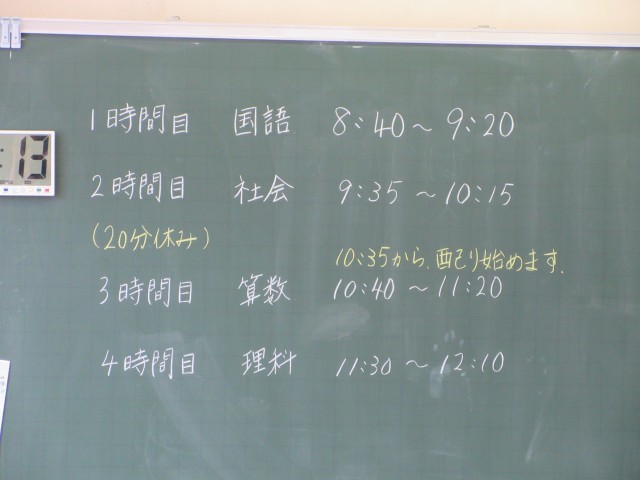 1時間目 国語 8:40～9:20
:13
2時間目 社会 9:35～10:15
(20分休み)
10:35から、配り始めます.
3時間目 算数 10:40～11:20
4時間目 理科 11:30～12:10